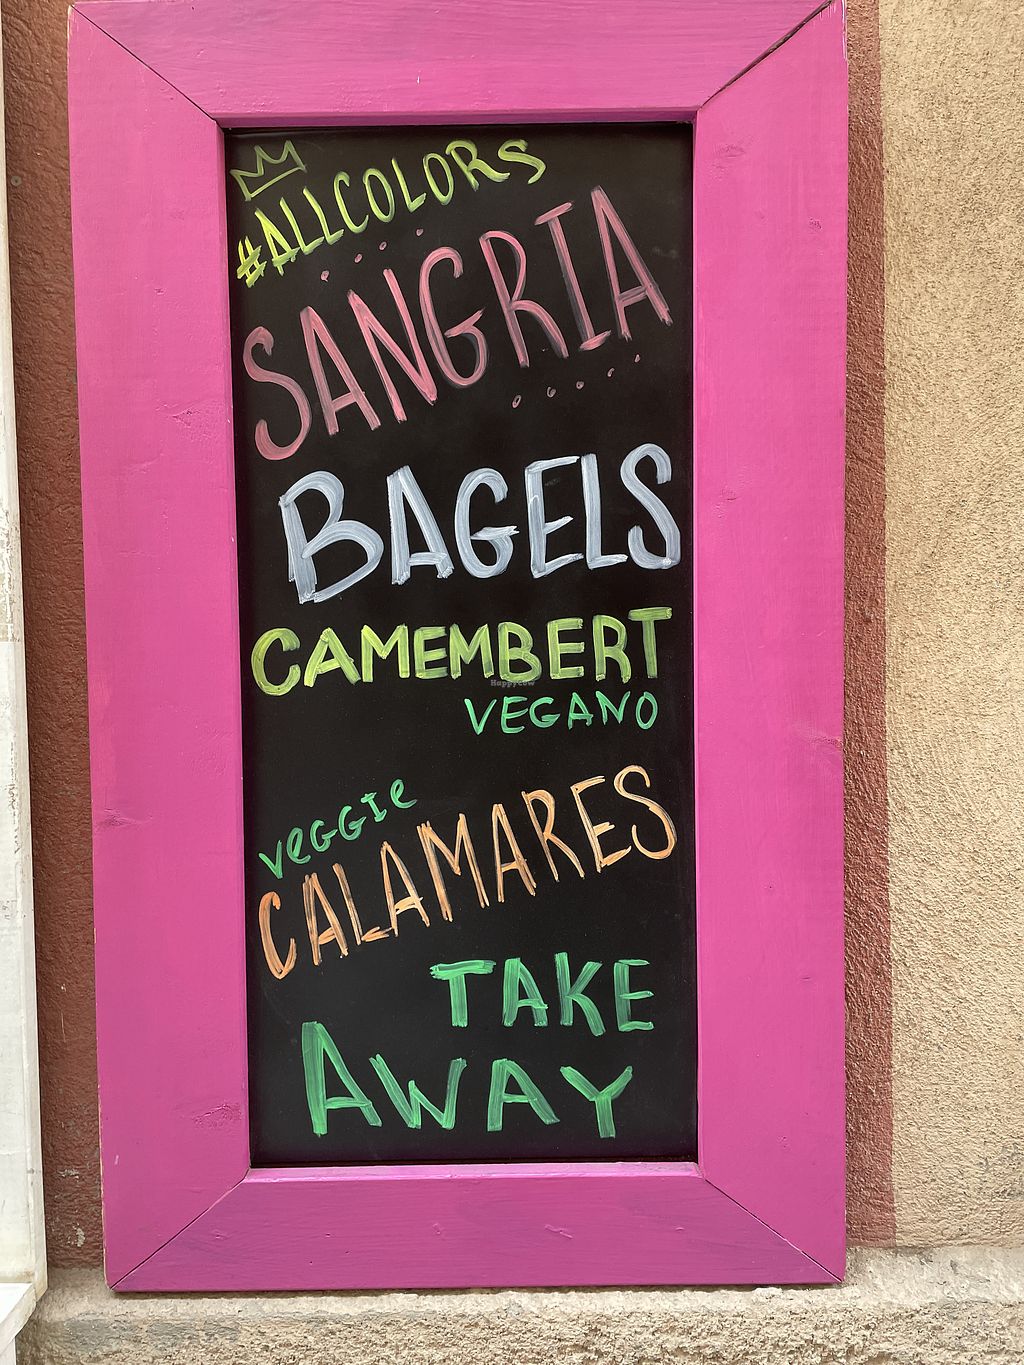 #ALLCOLORS
SANGRIA
BAGELS
CAMEMBERT
HappyCow
VEGANO
veGGIe
CALAMARES
TAKE
AWAY